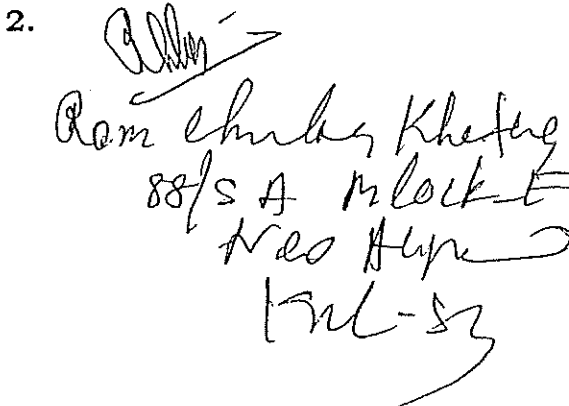 2.
Ram Khetan
88/5 A Block-E
New Alipore
Kol-53